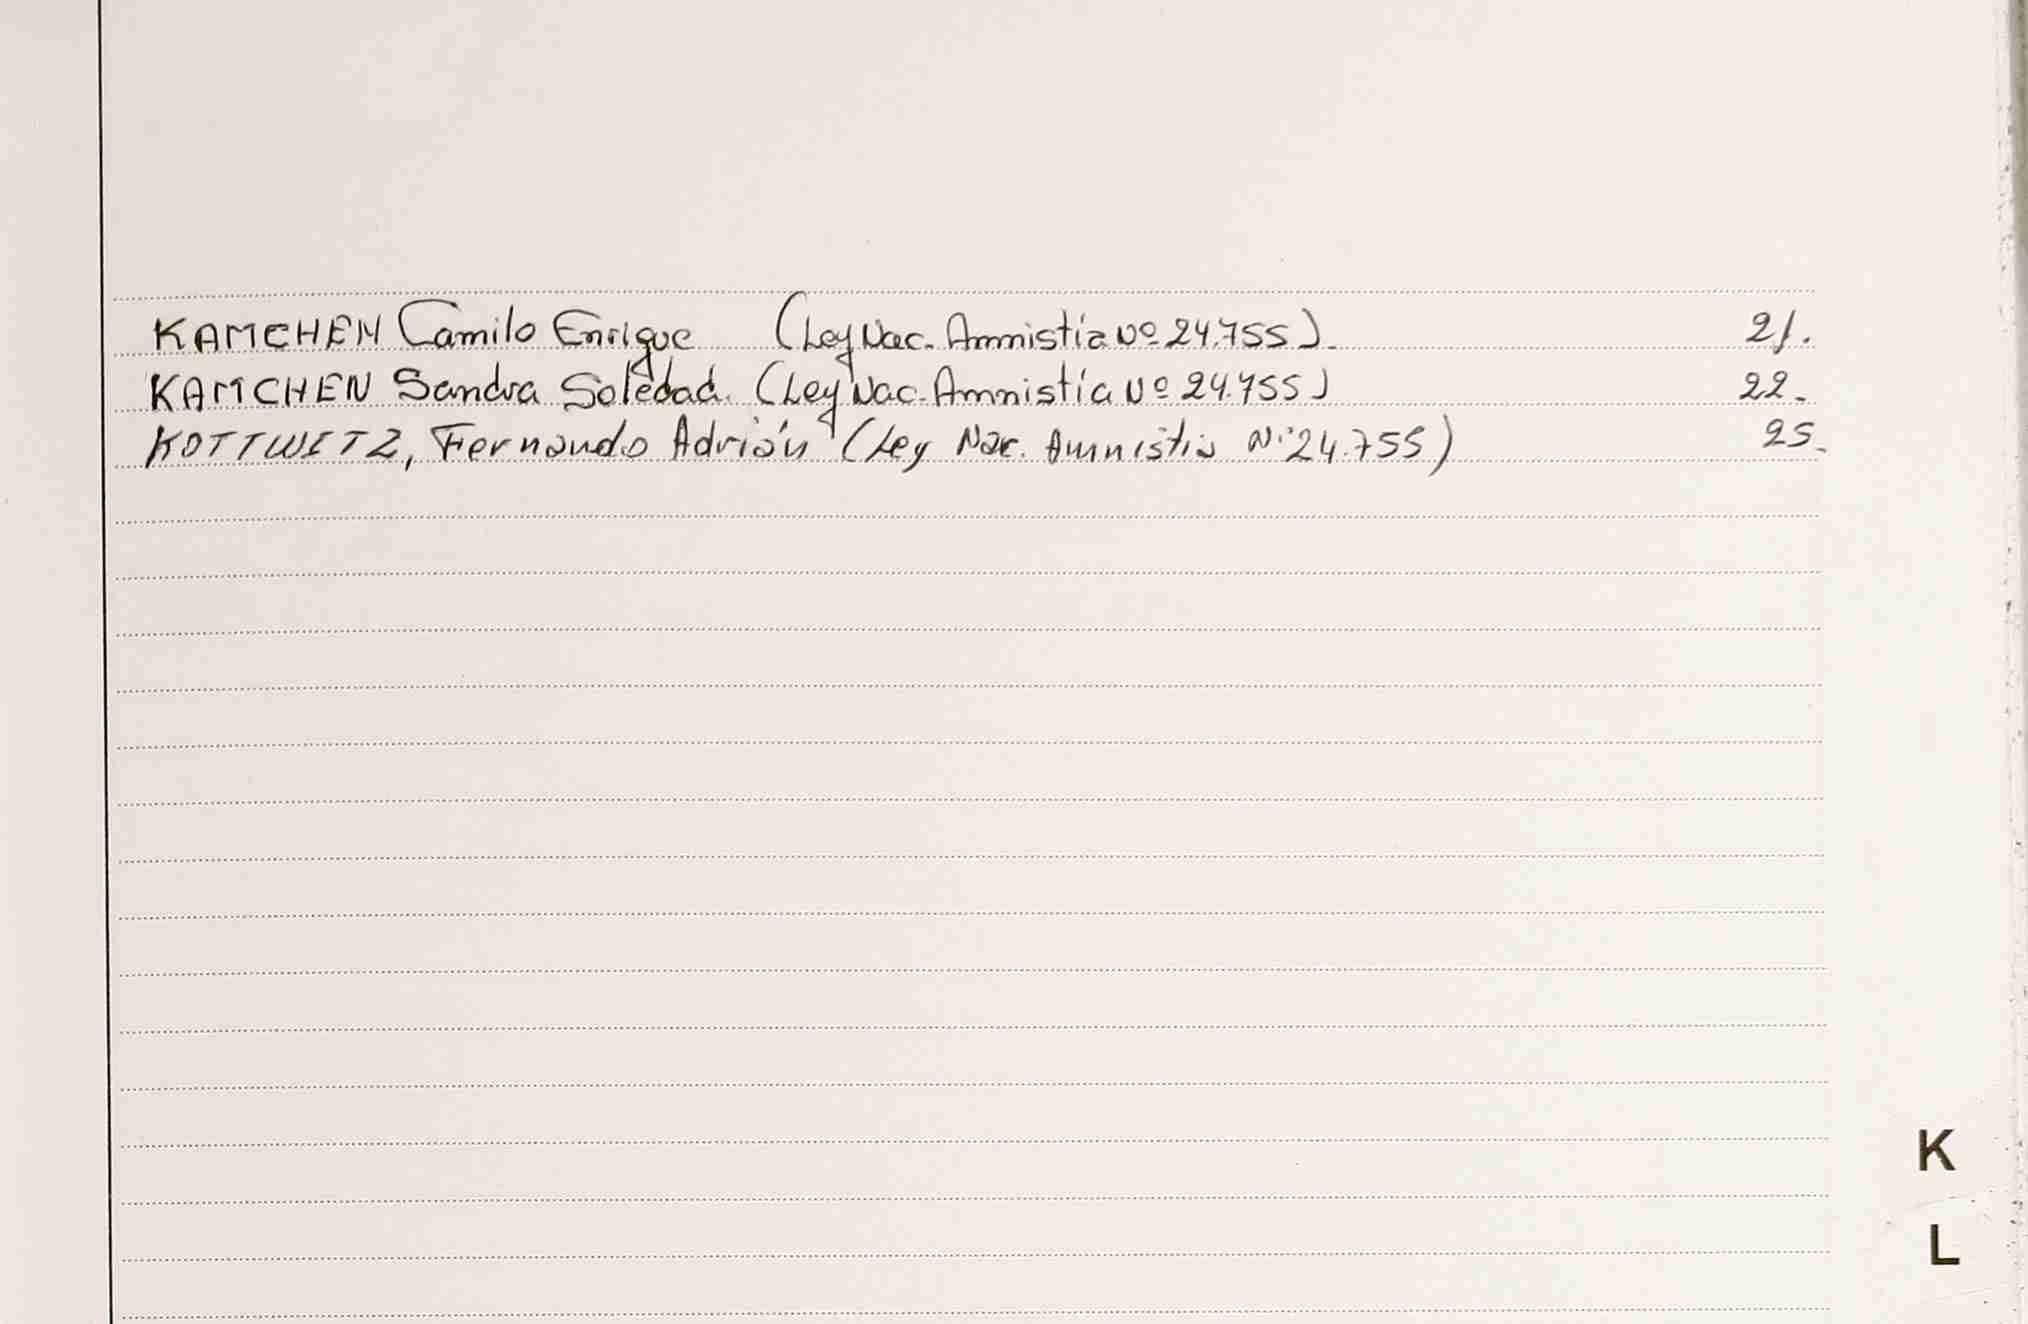 KAMCHEN Camilo Enrique (Ley Nac. Amnistía Nº 24.755). 21.
KAMCHEN Sandra Soledad. (Ley Nac. Amnistía Nº 24.755) 22.
KOTTWITZ, Fernando Adrián (Ley Nac. Amnistía Nº 24.755) 25.
K
L